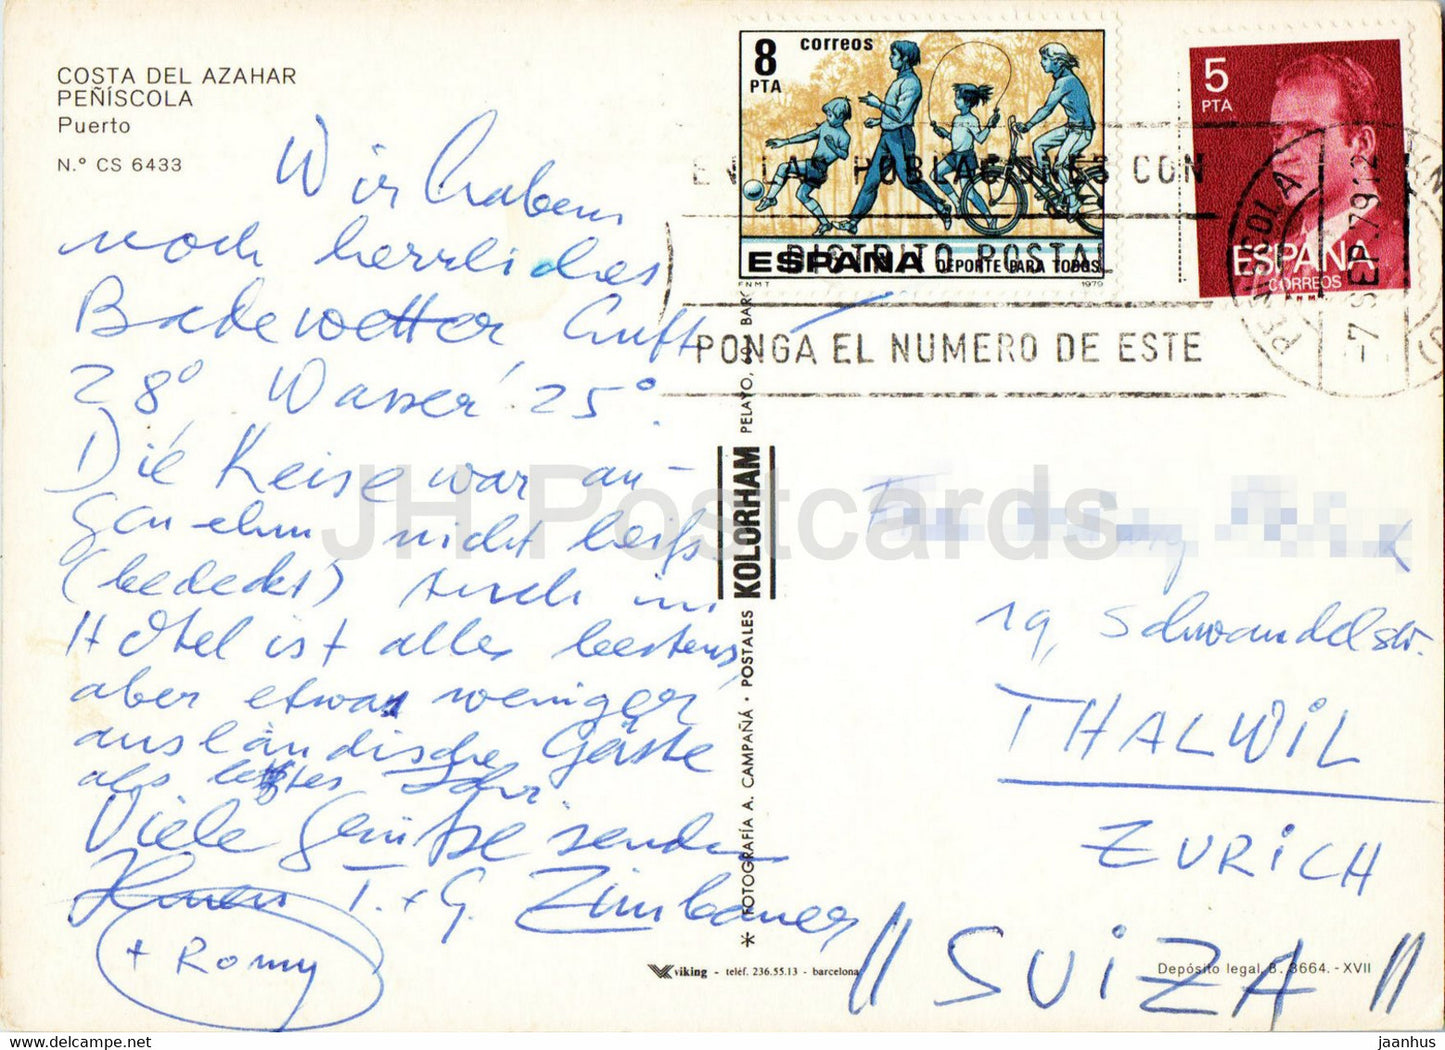 COSTA DEL AZAHAR
PEÑÍSCOLA
Puerto
N.º CS 6433
Wir haben
noch herrliches
Badewetter Luft
28°, Wasser 25°.
Die Reise war an-
genehm nicht heiß
(bedeckt) Auch im
Hotel ist alles bestens,
aber etwas weniger
ausländische Gäste
als letztes Jahr.
Viele Grüsse senden
Ihnen I. + G. Zimbauer
+ Romy
8 correos
PTA
ESPAÑA DEPORTE PARA TODOS
FNMT 1979
5
PTA
ESPAÑA
CORREOS
FNMT
EN LAS POBLACIONES CON
DISTRITO POSTAL
PONGA EL NUMERO DE ESTE
PEÑISCOLA
-7 SEP.79 12
* FOTOGRAFÍA A. CAMPAÑÁ · POSTALES KOLORHAM PELAYO,
viking - teléf. 236.55.13 - barcelona
Depósito legal, B. 3664. - XVII
19, Schwandelstr.
THALWIL
ZURICH
"SUIZA"
JH Postcards
www.delcampe.net
jaanhus